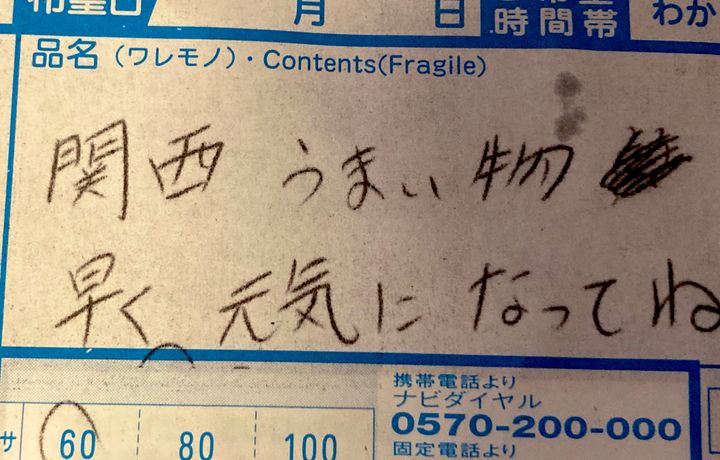 希望日 月 日 時間帯 わか
品名（ワレモノ）・Contents(Fragile)
関西 うまい物
早く 元気になってね
携帯電話より
ナビダイヤル
0570-200-000
固定電話より
サ 60 80 100